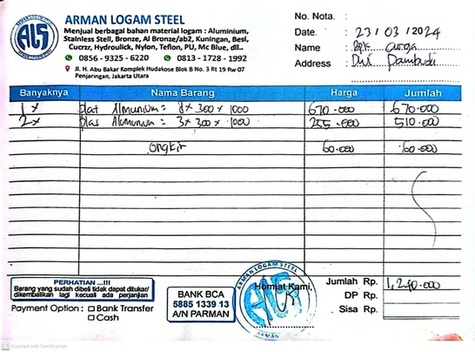 ARMAN LOGAM STEEL
Menjual berbagai bahan material logam : Aluminium,
Stainless Stell, Bronze, Al Bronze/ab2, Kuningan, Besi,
Cucrzr, Hydroulick, Nylon, Teflon, PU, Mc Blue, dll..
0856 - 9325 - 6220 0813 - 1728 - 1992
Jl. H. Abu Bakar Komplek Hudakose Blok B No. 3 Rt 19 Rw 07
Penjaringan, Jakarta Utara
ALS
No. Nota. :
Date. : 23/03/2024
Name : Bpk
Address :
Banyaknya Nama Barang Harga Jumlah
1 x plat Almunium = 8 x 300 x 1000 670.000 670.000
2 x plat Almunium = 3 x 300 x 1000 255.000 510.000
ongkir 60.000 60.000
PERHATIAN ...!!!
Barang yang sudah dibeli tidak dapat ditukar/
dikembalikan lagi kecuali ada perjanjian
Payment Option : Bank Transfer
Cash
BANK BCA
5885 1339 13
A/N PARMAN
Hormat Kami,
ARMAN LOGAM STEEL
ALS
Jumlah Rp. 1,240.000
DP Rp.
Sisa Rp.
Scanned with CamScanner